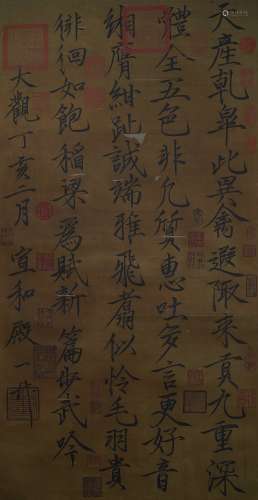 天產乾皐此異禽遐陬來貢九重深
體全五色非凡質惠吐多言更好音
緗膺紺趾誠端雅飛翥似憐毛羽貴
徘徊如飽稻粱為賦新篇步武吟
大觀丁亥二月宣和殿